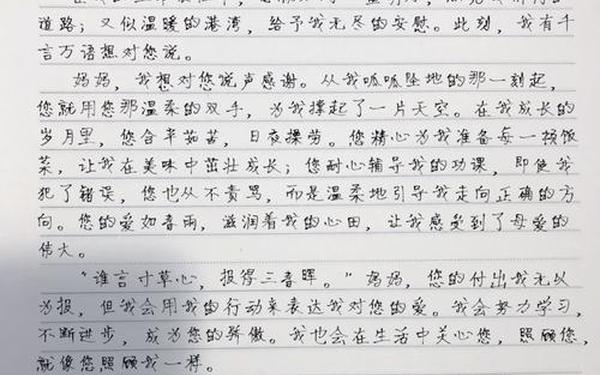 道路；又似温暖的港湾，给予我无尽的安慰。此刻，我有千
言万语想对您说。
妈妈，我想对您说声感谢。从我呱呱坠地的那一刻起，
您就用您那温柔的双手，为我撑起了一片天空。在我成长的
岁月里，您含辛茹苦，日夜操劳。您精心为我准备每一顿饭
菜，让我在美味中茁壮成长；您耐心辅导我的功课，即使我
犯了错误，您也从不责骂，而是温柔地引导我走向正确的方
向。您的爱如春雨，滋润着我的心田，让我感受到了母爱的
伟大。
“谁言寸草心，报得三春晖。”妈妈，您的付出我无以
为报，但我会用我的行动来表达我对您的爱。我会努力学习，
不断进步，成为您的骄傲。我也会在生活中关心您，照顾您，
就像您照顾我一样。